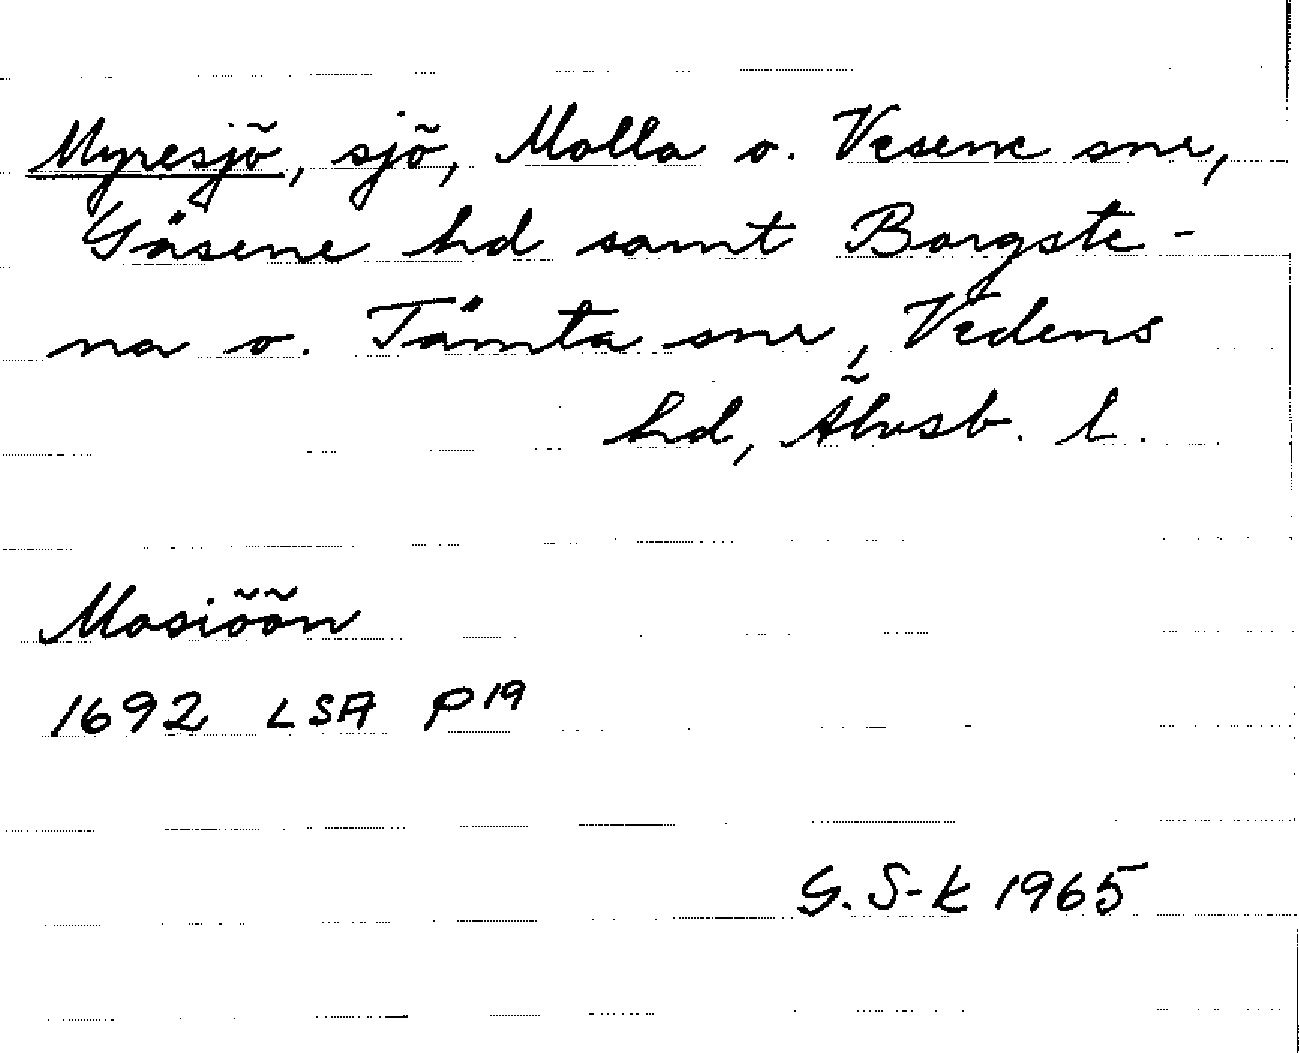 Myresjö, sjö, Molla o. Vesene snr,
Gäsene hd samt Borgste-
na o. Tämta snr, Vedens
hd, Älvsb. l.
Mosiöön
1692 LSA P19
G. S-k 1965